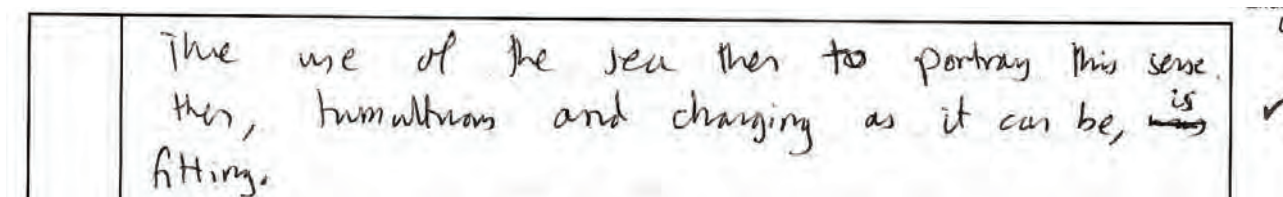 The use of the sea then to portray this sense.
then, tumultuous and changing as it can be, is
fitting.